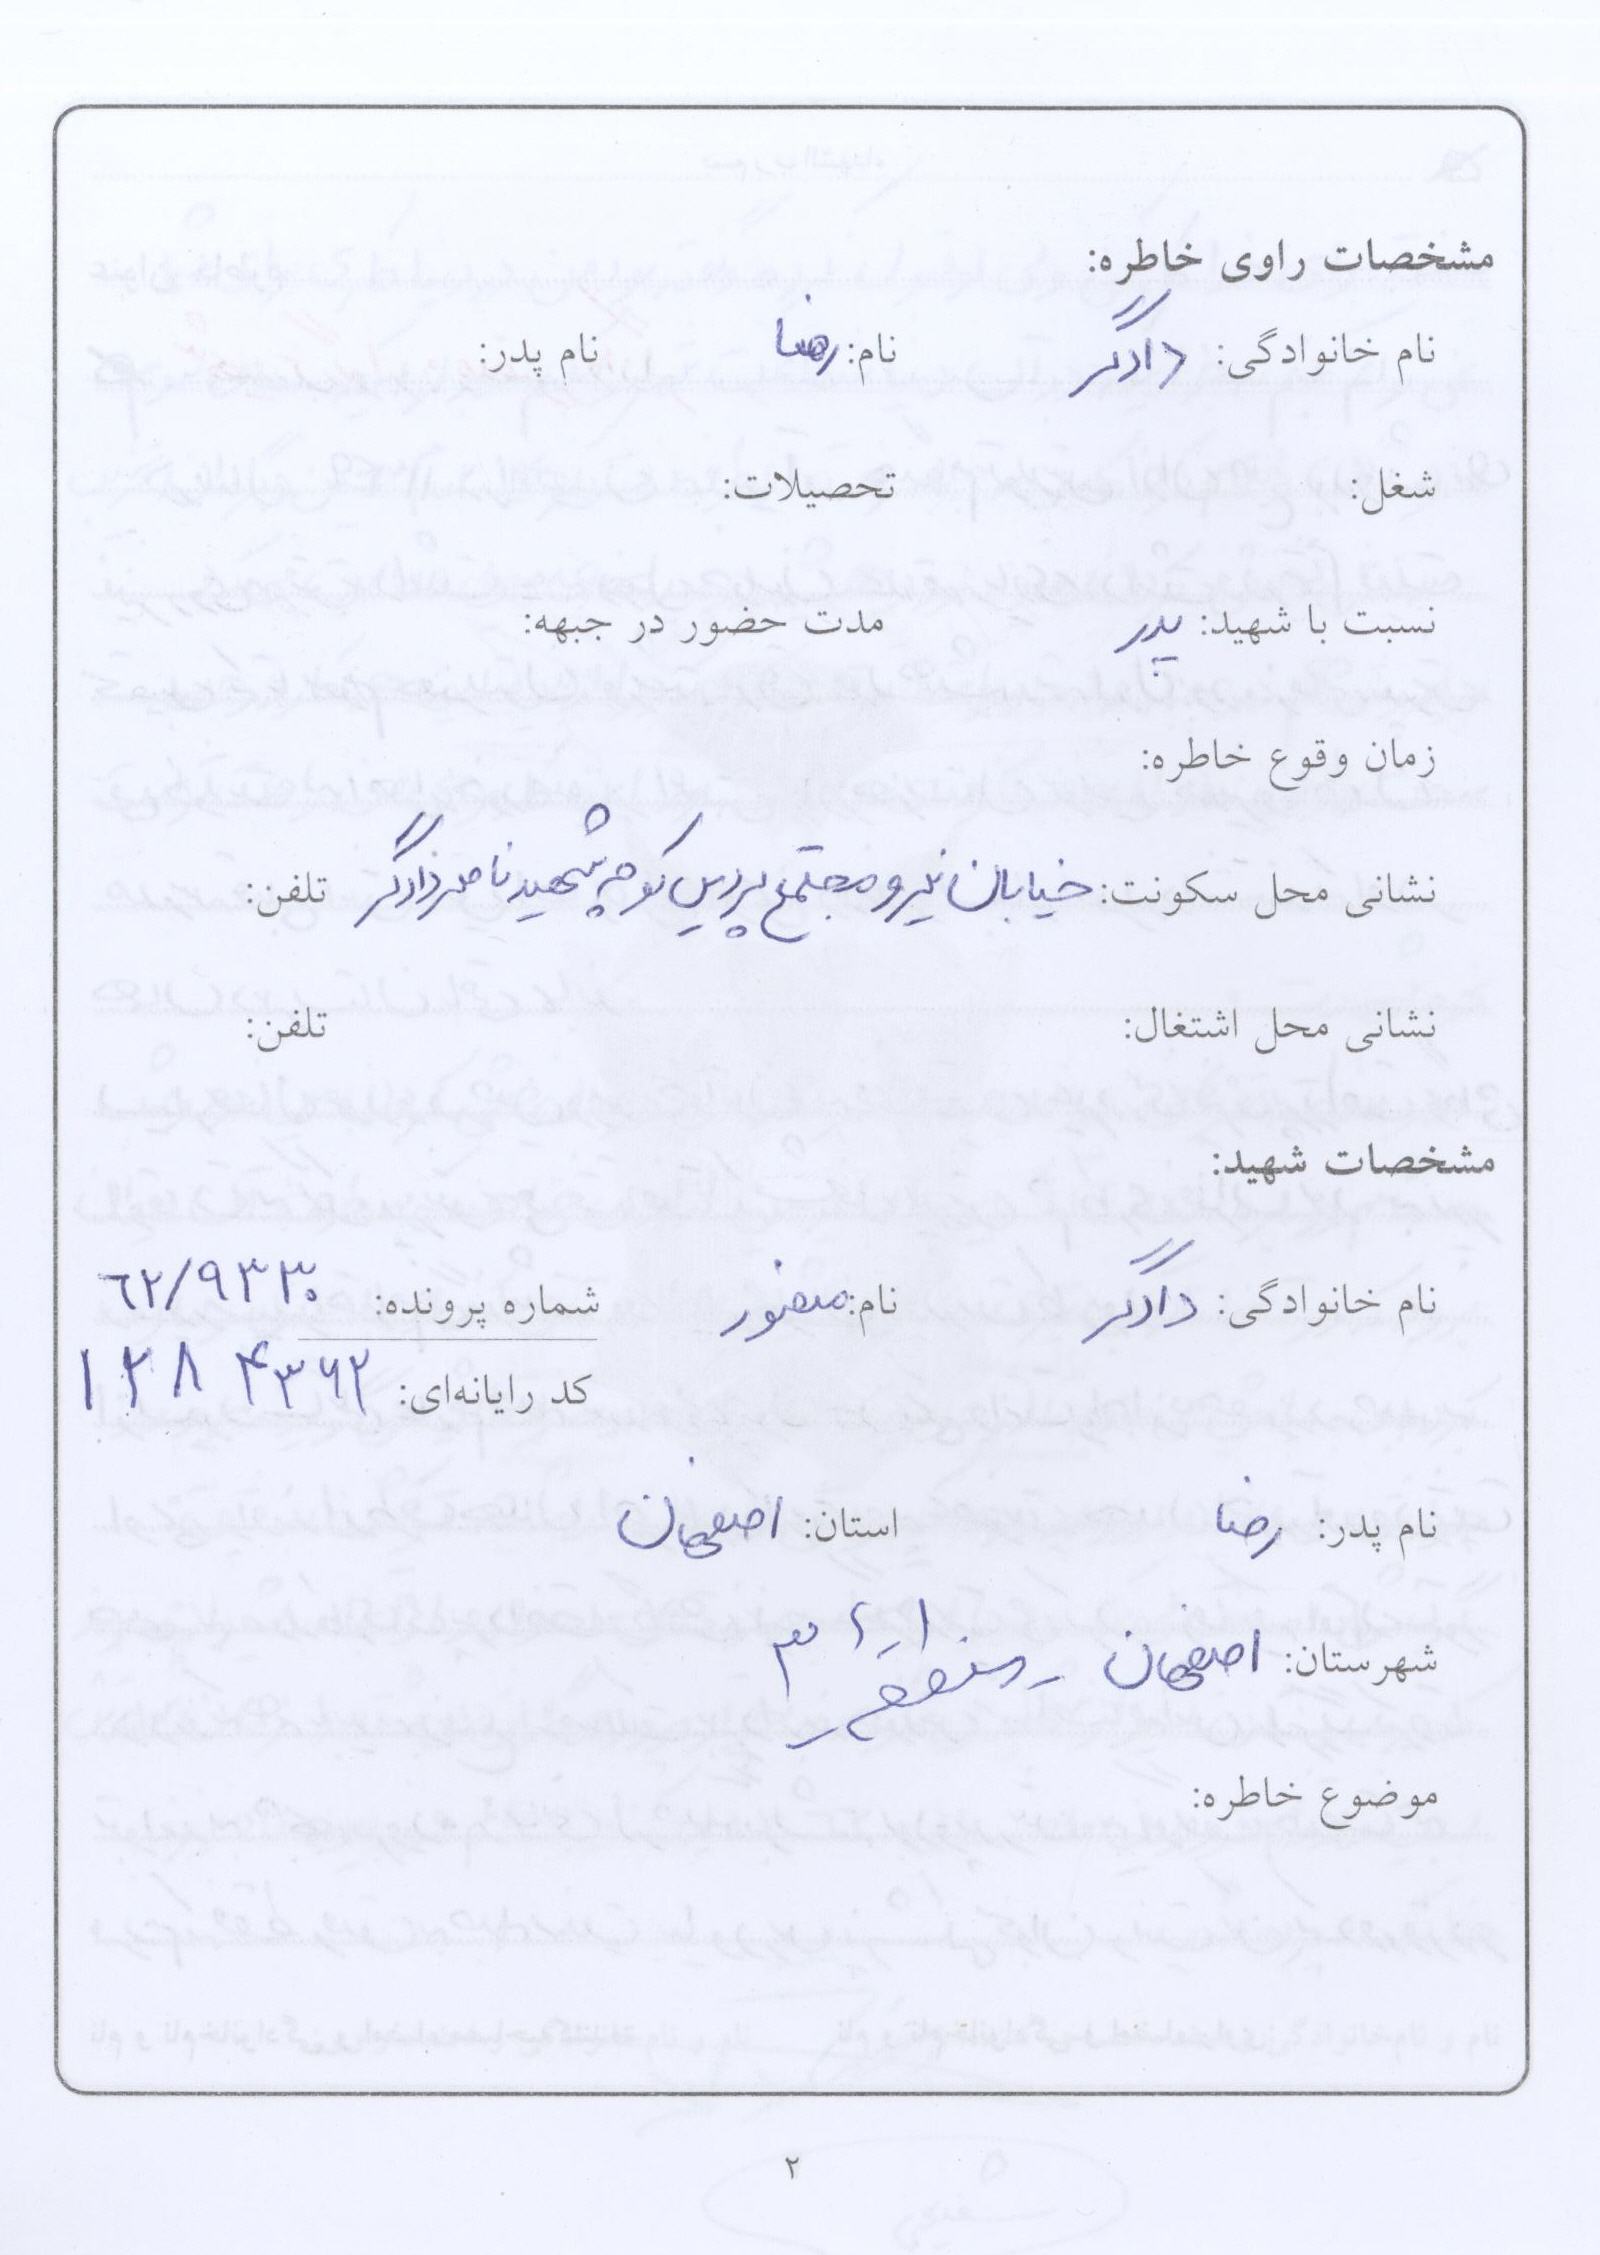 مشخصات راوی خاطره:
نام خانوادگی: دادگر نام: رضا نام پدر:
شغل: تحصیلات:
نسبت با شهید: پدر مدت حضور در جبهه:
زمان وقوع خاطره:
نشانی محل سکونت: خیابان نیرو مجتمع پردیس کوچه شهید ناصر دادگر تلفن:
نشانی محل اشتغال: تلفن:
مشخصات شهید:
نام خانوادگی: دادگر نام: منصور شماره پرونده: ٦٢/٩٣٣٠
کد رایانه‌ای: ١٢٨ ۴٣۶٢
نام پدر: رضا استان: اصفهان
شهرستان: اصفهان - منطقه ٣
موضوع خاطره:
٢